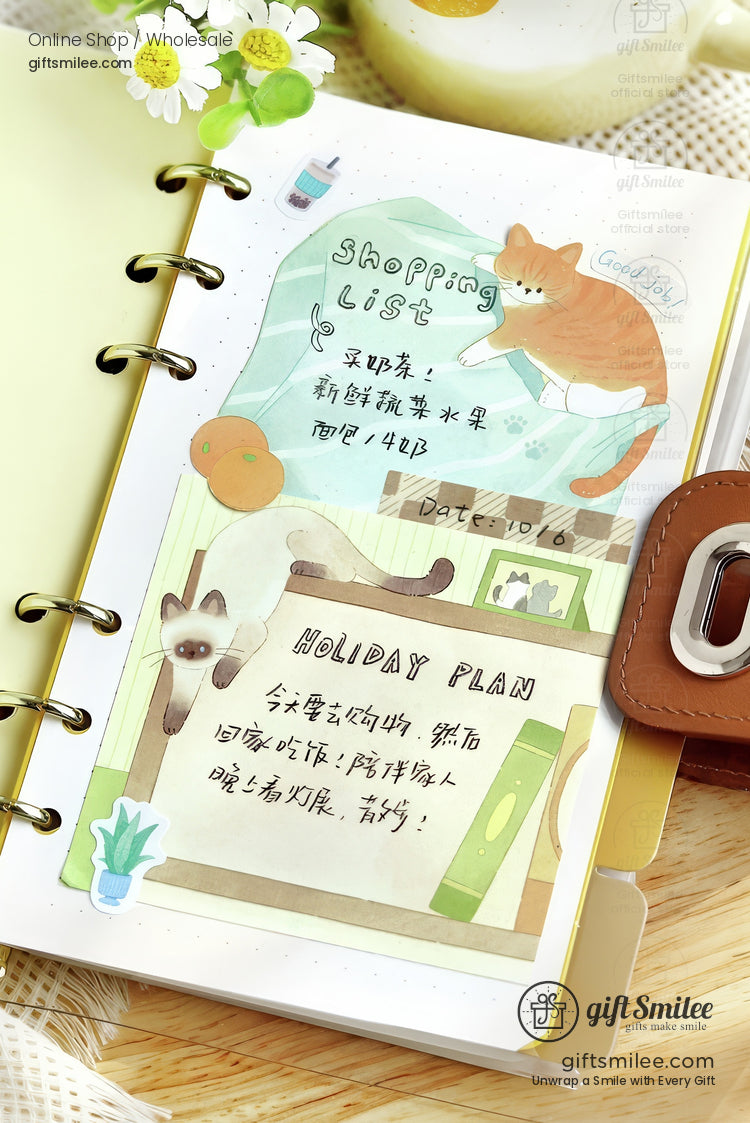 Online Shop / Wholesale
giftsmilee.com
gift Smilee
Giftsmilee
official store
gift Smilee
Giftsmilee
official store
Shopping
List
Good job!
买奶茶！
新鲜蔬菜水果
面包/牛奶
Giftsmilee
official store
Giftsmilee
official store
Date: 10/6
HOLIDAY PLAN
今天要去购物．然后
回家吃饭！陪伴家人
晚上看灯展，散步！
gift Smilee
gifts make smile
giftsmilee.com
Unwrap a Smile with Every Gift